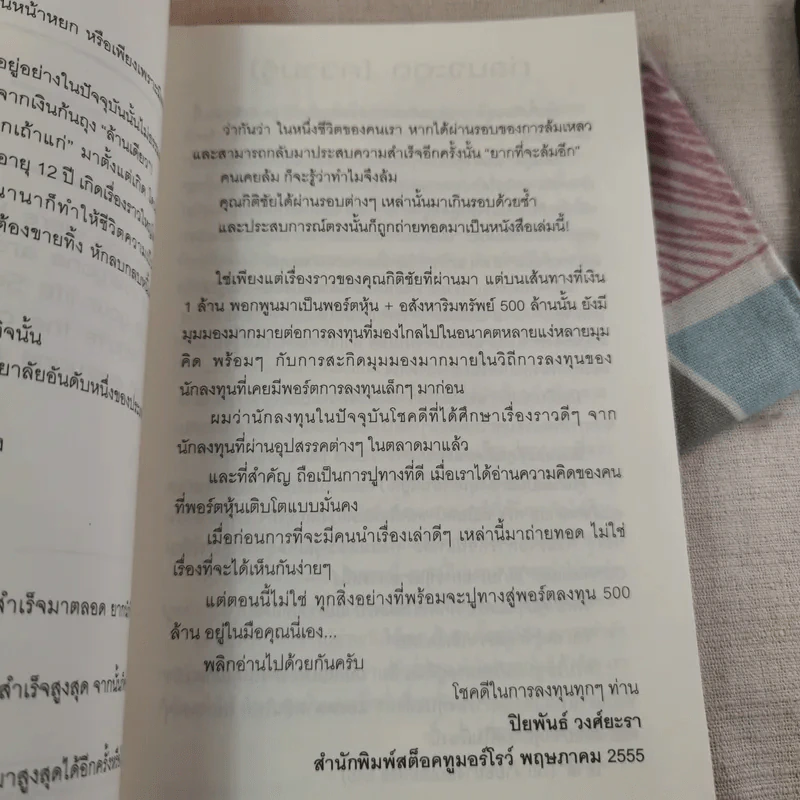 นหน้าหยก หรือเพียงเพราะ
อยู่อย่างในปัจจุบันนั้น
จากเงินก้นถุง "ล้านเดียว"
กเถ้าแก่" มาตั้งแต่เกิด
อายุ 12 ปี เกิดเรื่องราว
นานาก็ทำให้ชีวิตความ
ต้องขายทิ้ง หักลบกลบหนี้
จนั้น
ยาลัยอันดับหนึ่งของ
สำเร็จมาตลอด
สำเร็จสูงสุด จากนั้น
มาสูงสุดได้อีกครั้ง
ว่ากันว่า ในหนึ่งชีวิตของคนเรา หากได้ผ่านรอบของการล้มเหลว
และสามารถกลับมาประสบความสำเร็จอีกครั้งนั้น "ยากที่จะล้มอีก"
คนเคยล้ม ก็จะรู้ว่าทำไมจึงล้ม
คุณกิติชัยได้ผ่านรอบต่างๆ เหล่านั้นมาเกินรอบด้วยซ้ำ
และประสบการณ์ตรงนั้นก็ถูกถ่ายทอดมาเป็นหนังสือเล่มนี้!
ใช่เพียงแต่เรื่องราวของคุณกิติชัยที่ผ่านมา แต่บนเส้นทางที่เงิน
1 ล้าน พอกพูนมาเป็นพอร์ตหุ้น + อสังหาริมทรัพย์ 500 ล้านนั้น ยังมี
มุมมองมากมายต่อการลงทุนที่มองไกลไปในอนาคตหลายแง่หลายมุม
คิด พร้อมๆ กับการสะกิดมุมมองมากมายในวิถีการลงทุนของ
นักลงทุนที่เคยมีพอร์ตการลงทุนเล็กๆ มาก่อน
ผมว่านักลงทุนในปัจจุบันโชคดีที่ได้ศึกษาเรื่องราวดีๆ จาก
นักลงทุนที่ผ่านอุปสรรคต่างๆ ในตลาดมาแล้ว
และที่สำคัญ ถือเป็นการปูทางที่ดี เมื่อเราได้อ่านความคิดของคน
ที่พอร์ตหุ้นเติบโตแบบมั่นคง
เมื่อก่อนการที่จะมีคนนำเรื่องเล่าดีๆ เหล่านี้มาถ่ายทอด ไม่ใช่
เรื่องที่จะได้เห็นกันง่ายๆ
แต่ตอนนี้ไม่ใช่ ทุกสิ่งอย่างที่พร้อมจะปูทางสู่พอร์ตลงทุน 500
ล้าน อยู่ในมือคุณนี่เอง...
พลิกอ่านไปด้วยกันครับ
โชคดีในการลงทุนทุกๆ ท่าน
ปิยพันธ์ วงศ์ยะรา
สำนักพิมพ์สต็อคทูมอร์โรว์ พฤษภาคม 2555